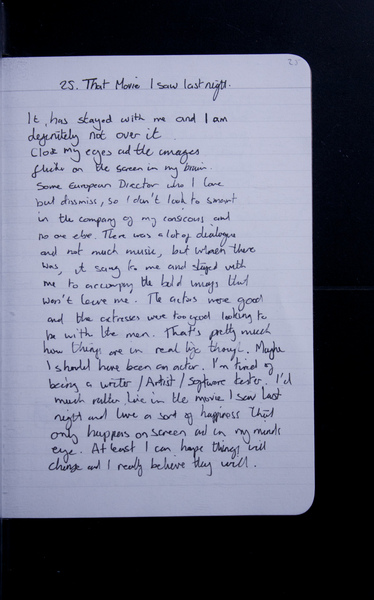 25
25. That Movie I saw last night.
It has stayed with me and I am
definitely not over it.
Close my eyes and the images
flicker on the screen in my brain.
Some European Director who I love
but dismiss, so I don't look to smart
in the company of my conscious and
no one else. There was a lot of dialogue
and not much music, but when there
was, it sang to me and stayed with
me to accompany the bold images that
won't leave me. The actors were good
and the actresses were too good looking to
be with the men. That's pretty much
how things are in real life though. Maybe
I should have been an actor. I'm tired of
being a writer/Artist/Software tester. I'd
much rather live in the movie I saw last
night and live a sort of happiness that
only happens on screen and in my minds
eye. At least I can hope things will
change and I really believe they will.